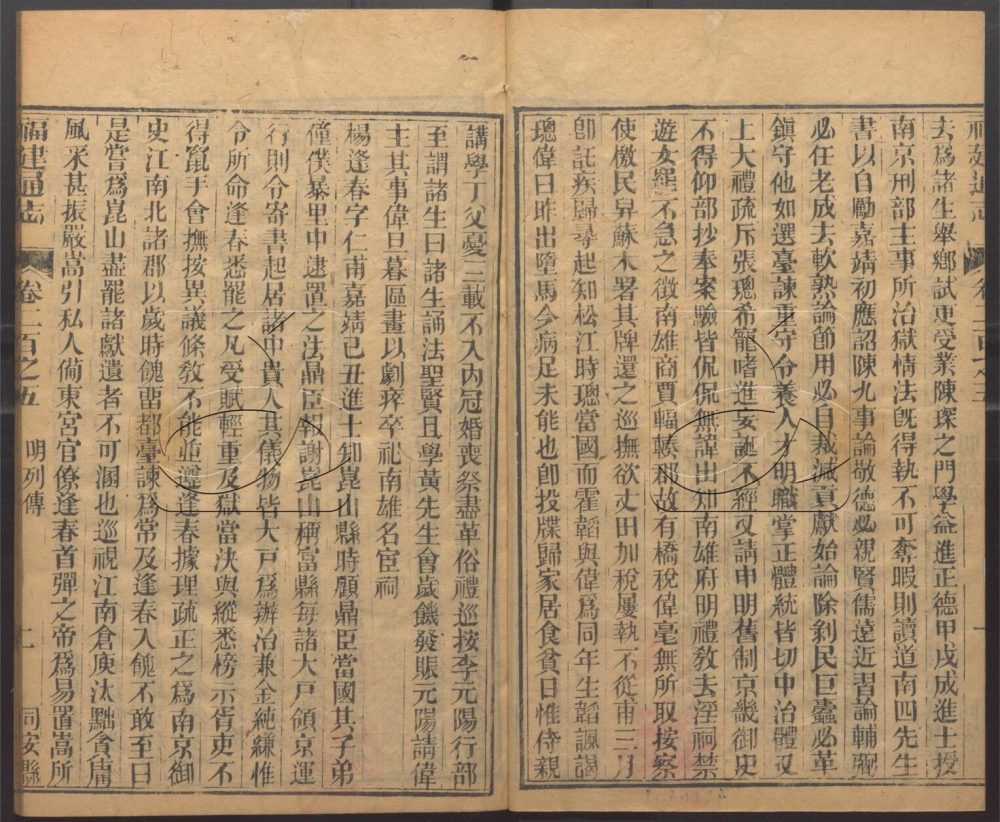 去為諸生舉鄉試更受業陳琛之門學益進正德甲戌成進士授
南京刑部主事所治獄情法既得執不可奪暇則讀道南四先生
書以自勵嘉靖初應詔陳九事論敬德必親賢儒遠近習論輔
必任老成去軟熟論節用必自裁減貢獻始論除剝民巨蠹必革
鎮守他如選臺諫重守令養人才明職掌正體統皆切中治體又
上大禮疏斥張璁希寵嗜進妄誕不經又請申明舊制京畿御史
不得仰部抄奉案驗皆侃侃無諱出知南雄府明禮教去淫祠禁
遊女罷不急之徵南雄商賈輻輳郡故有橋稅偉毫無所取按察
使檄民舁蘇木署其牌還之巡撫欲丈田加稅屢執不從甫三月
卽託疾歸尋起知松江時璁當國而霍韜與偉為同年生韜諷謁
璁偉曰昨出墮馬今病足未能也卽投牒歸家居食貧日惟侍親
講學丁父憂三載不入內冠婚喪祭盡革俗禮巡按李元陽行部
至謂諸生曰諸生誦法聖賢且學黃先生會歲饑發賑元陽請偉
主其事偉日暮區畫以劇瘁卒祀南雄名宦祠
楊逢春字仁甫嘉靖己丑進士知崑山縣時顧鼎臣當國其子弟
僮僕暴里中逮置之法鼎臣報謝崑山稱富縣每諸大戸領京運
行則令寄書起居諸中貴人其儀物皆大戸為辦治兼金純縑惟
令所命逢春悉罷之凡受賦輕重及獄當決與縱悉榜示胥吏不
得竄手會撫按異議條敎不能並遵逢春據理疏正之為南京御
史江南北諸郡以歲時餽畱都臺諫為常及逢春入餽不敢至曰
是嘗為崑山盡罷諸獻遺者不可溷也巡視江南倉庾汰黜貪庸
風采甚振嚴嵩引私人備東宮官僚逢春首彈之帝為易置嵩所
福建通志
卷二百之五
明列傳
同安縣